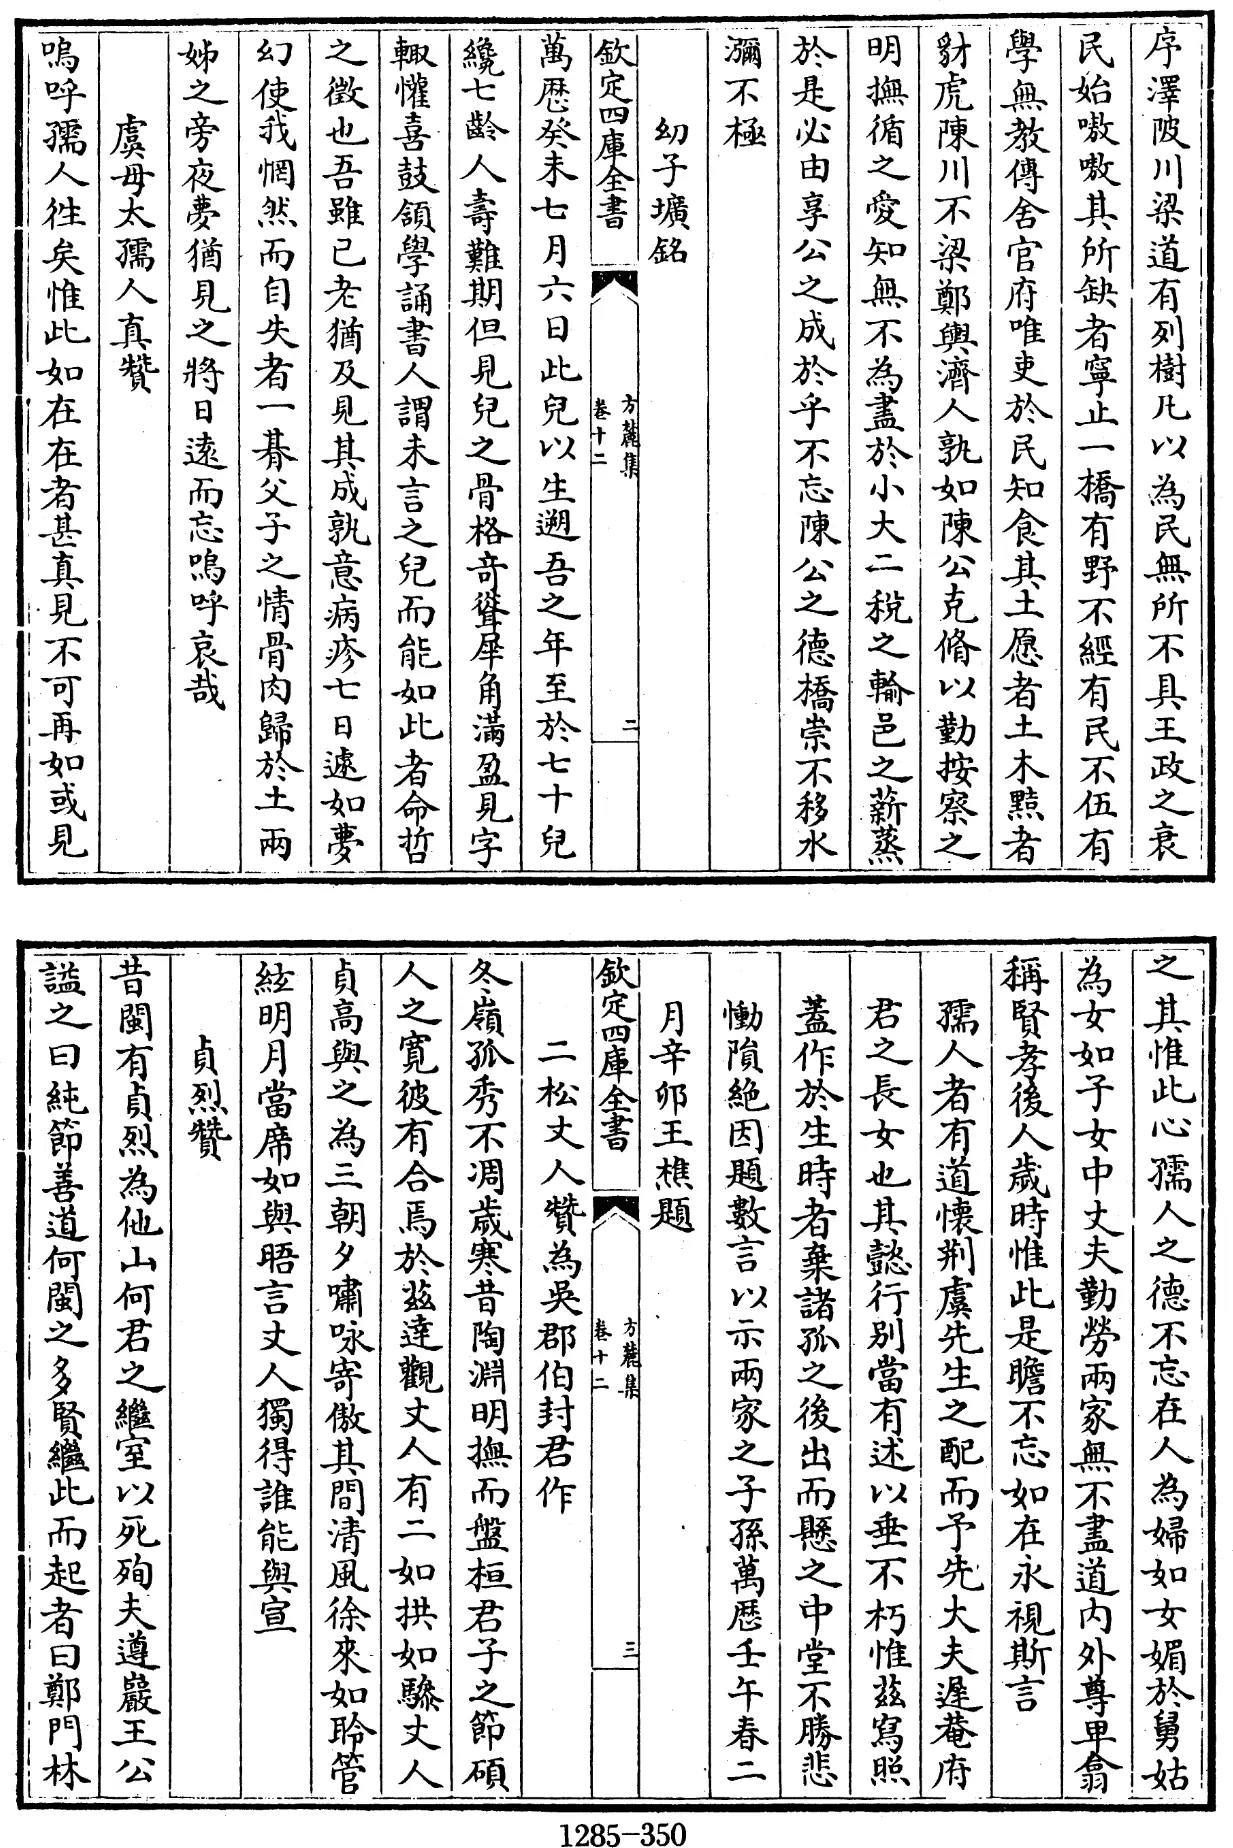 序澤陂川梁道有列樹凡以為民無所不具王政之衰
民始嗷嗷其所缺者寧止一橋有野不經有民不伍有
學無教傳舍官府唯吏於民知食其土愿者土木黠者
豺虎陳川不梁鄭輿濟人孰如陳公克脩以勤按察之
明撫循之愛知無不為盡於小大二稅之輸邑之薪蒸
於是必由享公之成於乎不忘陳公之德橋崇不移水
瀰不極
幼子壙銘
欽定四庫全書
方麓集
卷十二
二
萬厯癸未七月六日此兒以生遡吾之年至於七十兒
纔七齡人壽難期但見兒之骨格奇聳犀角滿盈見字
輙懽喜鼓頷學誦書人謂未言之兒而能如此者命哲
之徵也吾雖已老猶及見其成孰意病疹七日遽如夢
幻使我惘然而自失者一朞父子之情骨肉歸於土兩
姊之旁夜夢猶見之將日逺而忘嗚呼哀哉
虞母太孺人真贊
嗚呼孺人徃矣惟此如在在者甚真見不可再如或見
之其惟此心孺人之德不忘在人為婦如女媚於舅姑
為女如子女中丈夫勤勞兩家無不盡道内外尊卑翕
稱賢孝後人歲時惟此是瞻不忘如在永視斯言
孺人者有道懷荆虞先生之配而予先大夫遲菴府
君之長女也其懿行别當有述以垂不朽惟兹寫照
蓋作於生時者棄諸孤之後出而懸之中堂不勝悲
慟隕絶因題數言以示兩家之子孫萬厯壬午春二
月辛卯王樵題
欽定四庫全書
方麓集
卷十二
三
二松丈人贊為吳郡伯封君作
冬嶺孤秀不凋歲寒昔陶淵明撫而盤桓君子之節碩
人之寛彼有合焉於兹達觀丈人有二如拱如驂丈人
貞高與之為三朝夕嘯咏寄傲其間清風徐來如聆管
絃明月當席如與晤言丈人獨得誰能與宣
貞烈贊
昔閩有貞烈為他山何君之繼室以死殉夫遵巖王公
謚之曰純節善道何閩之多賢繼此而起者曰鄭門林
1285-350